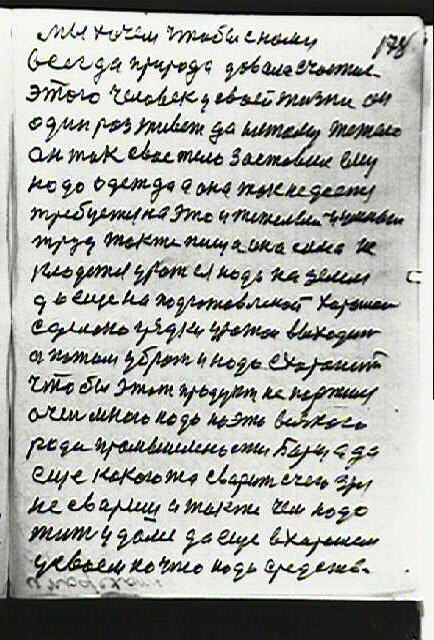 мы хочем чтобы с нами 178
всегда природа довала счастие
этого человек у своей жизни он
один раз живет да и потому тежело
он так свое тело заставил ему
надо одежда а она так не дается
требуется на это и тежелый и умный
труд также пища она сама не
кладется у рот ее надо на земле
да еще на подготовленой хорошо
сделано грядки урожай выходит
а потом убрать и надо схаранить
чтобы этот продукт не портился
о чем много надо на это всякого
рода промышлености Баня а да
еще какого то сварит с чего зря
не свариш и также чем надо
жить и дале да еще в хорошем
уквоем на что надо средства